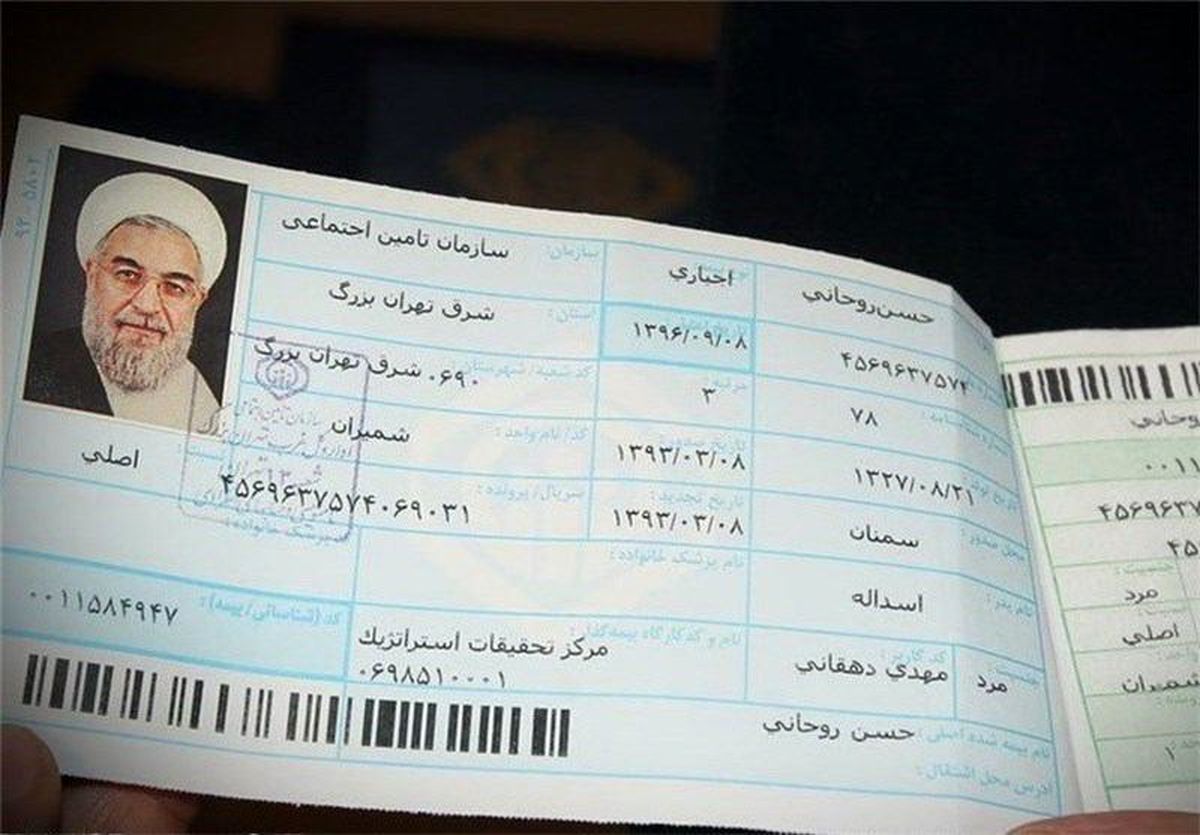 ۹۲۰۵۸۰۲
حسن‌روحاني
اجباري
سازمان: سازمان تامین اجتماعی
۴۵۶۹۶۳۷۵۷۴
۱۳۹۶/۰۹/۰۸
استان: شرق تهران بزرگ
۷۸
۳
کد شعبه/ شهرستان: ۰۶۹۰ شرق تهران بزرگ
تاریخ تولد: ۱۳۲۷/۰۸/۲۱
تاریخ صدور: ۱۳۹۳/۰۳/۰۸
کد/ نام واحد: شمیران
محل صدور: سمنان
تاریخ تجدید: ۱۳۹۳/۰۳/۰۸
سریال/ پرونده: ۴۵۶۹۶۳۷۵۷۴۰۶۹۰۳۱
اصلي
نام پدر: اسداله
نام پزشک خانواده:
کد (شناسائی/ بیمه): ۰۰۱۱۵۸۴۹۴۷
جنسیت: مرد
کد کاربر: مهدي دهقاني
نام و کد کارگاه بیمه‌گذار: مرکز تحقیقات استراتژیك
۰۶۹۸۵۱۰۰۰۱
نام بیمه شده اصلی: حسن روحاني
آدرس محل اشتغال:
وحاني
۰۰۱۱
۴۵۶۹۶۳۷
۴۵
جنسیت:
مرد
اصلي
شمیران
۱